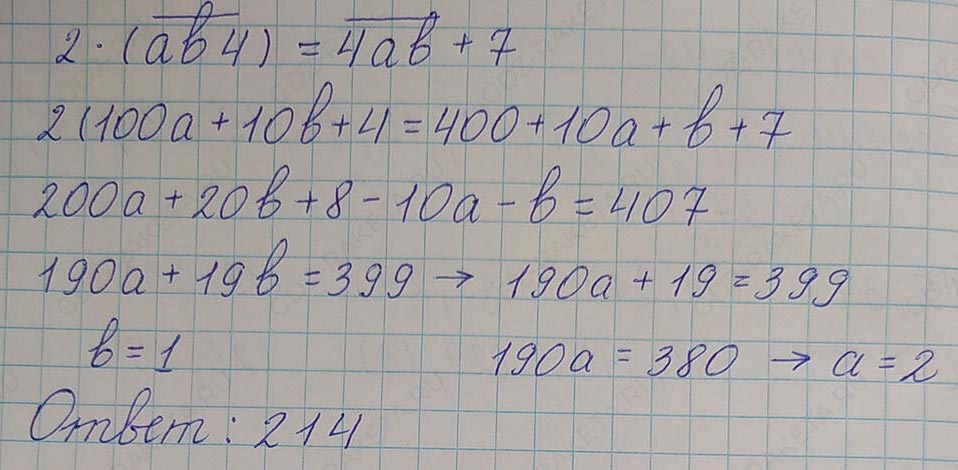 2 · (ab4) = 4ab + 7
2(100a + 10b + 4 = 400 + 10a + b + 7
200a + 20b + 8 - 10a - b = 407
190a + 19b = 399 → 190a + 19 = 399
b = 1 190a = 380 → a = 2
Ответ: 214